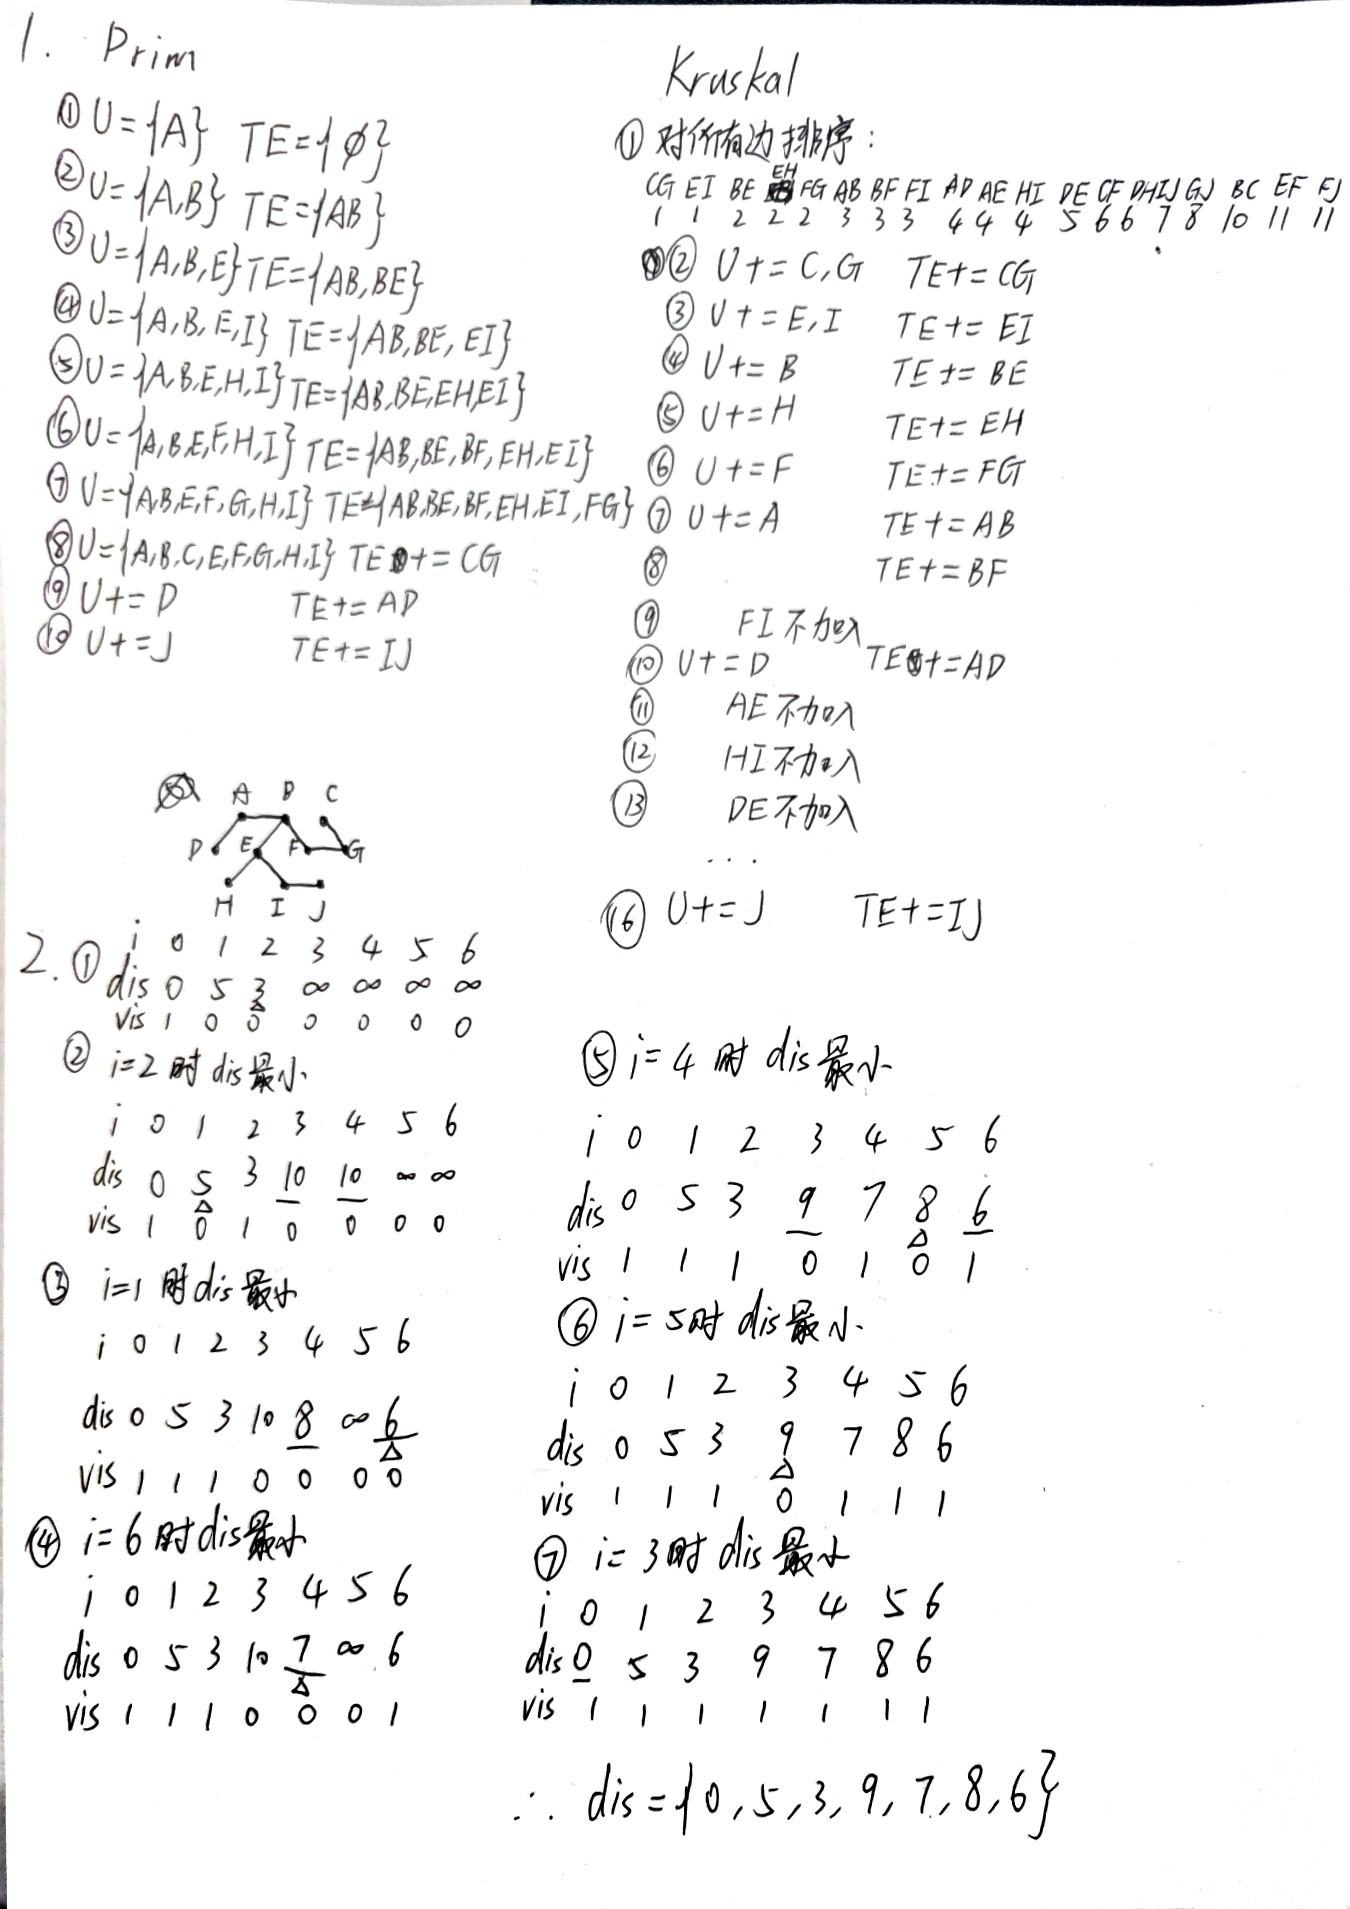 1. Prim
① U={A} TE={∅}
② U={A,B} TE={AB}
③ U={A,B,E} TE={AB,BE}
④ U={A,B,E,I} TE={AB,BE,EI}
⑤ U={A,B,E,H,I} TE={AB,BE,EH,EI}
⑥ U={A,B,E,F,H,I} TE={AB,BE,BF,EH,EI}
⑦ U={A,B,E,F,G,H,I} TE={AB,BE,BF,EH,EI,FG}
⑧ U={A,B,C,E,F,G,H,I} TE+=CG
⑨ U+=D TE+=AD
⑩ U+=J TE+=IJ
A B C
D E F G
H I J
Kruskal
① 对所有边排序:
CG EI BE EH FG AB BF FI AD AE HI DE CF DH IJ GJ BC EF FJ
1 1 2 2 2 3 3 3 4 4 4 5 6 6 7 8 10 11 11
② U+=C,G TE+=CG
③ U+=E,I TE+=EI
④ U+=B TE+=BE
⑤ U+=H TE+=EH
⑥ U+=F TE+=FG
⑦ U+=A TE+=AB
⑧ TE+=BF
⑨ FI不加入
⑩ U+=D TE+=AD
⑪ AE不加入
⑫ HI不加入
⑬ DE不加入
...
⑯ U+=J TE+=IJ
2. ① i 0 1 2 3 4 5 6
dis 0 5 3 ∞ ∞ ∞ ∞
vis 1 0 0 0 0 0 0
② i=2时dis最小
i 0 1 2 3 4 5 6
dis 0 5 3 10 10 ∞ ∞
vis 1 0 1 0 0 0 0
③ i=1时dis最小
i 0 1 2 3 4 5 6
dis 0 5 3 10 8 ∞ 6
vis 1 1 1 0 0 0 0
④ i=6时dis最小
i 0 1 2 3 4 5 6
dis 0 5 3 10 7 ∞ 6
vis 1 1 1 0 0 0 1
⑤ i=4时dis最小
i 0 1 2 3 4 5 6
dis 0 5 3 9 7 8 6
vis 1 1 1 0 1 0 1
⑥ i=5时dis最小
i 0 1 2 3 4 5 6
dis 0 5 3 9 7 8 6
vis 1 1 1 0 1 1 1
⑦ i=3时dis最小
i 0 1 2 3 4 5 6
dis 0 5 3 9 7 8 6
vis 1 1 1 1 1 1 1
∴ dis={0,5,3,9,7,8,6}